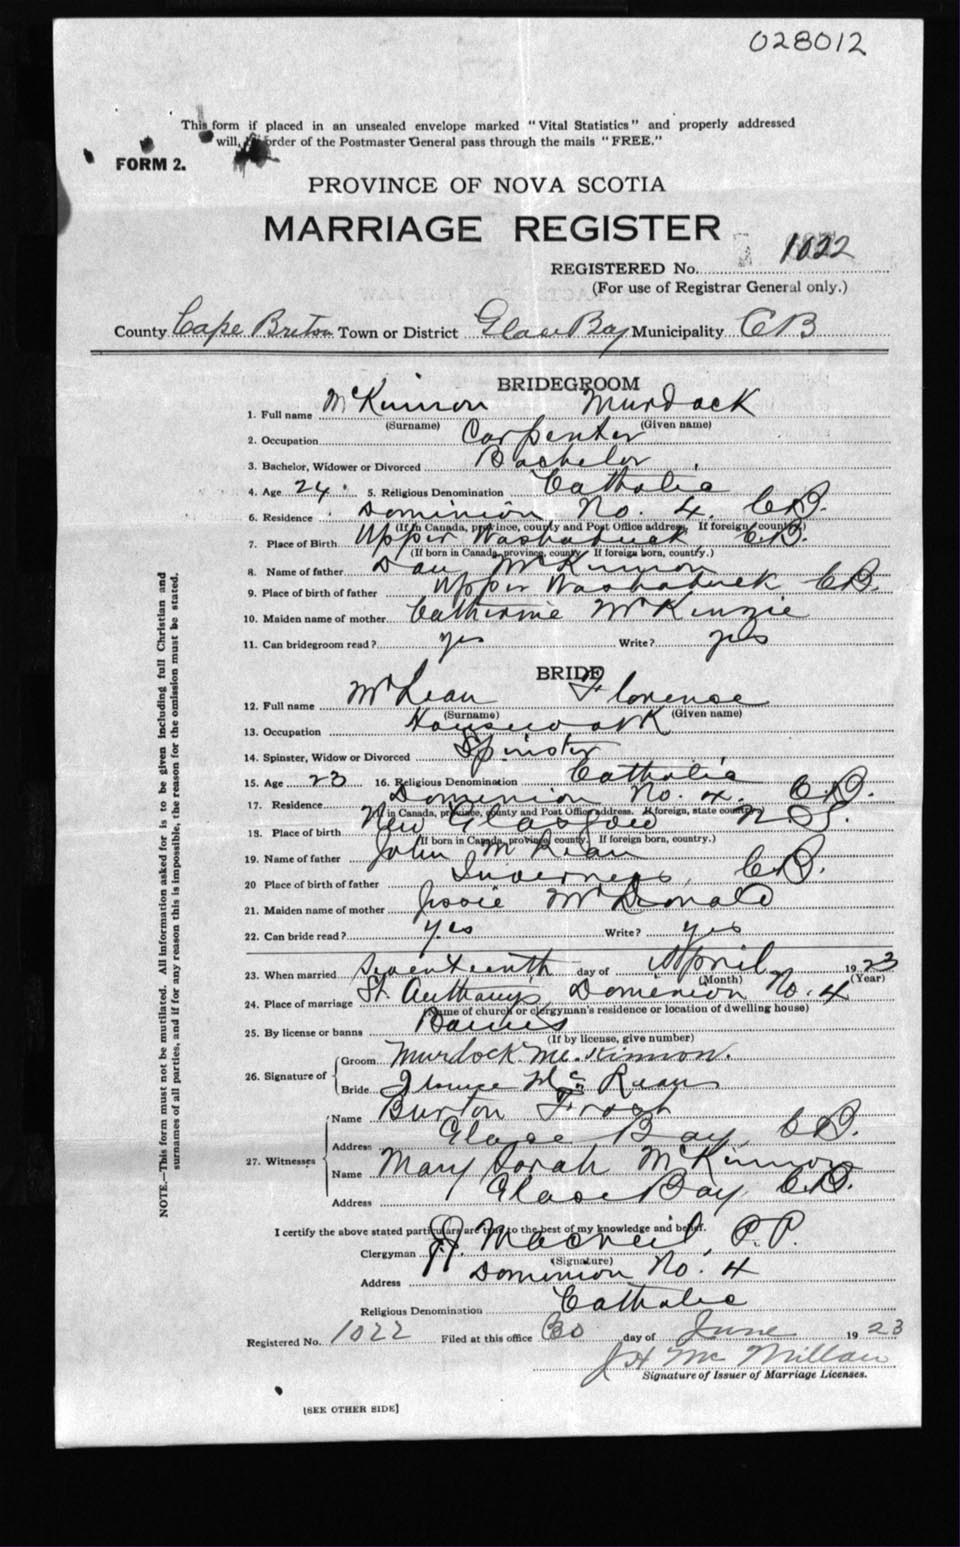 028012
This form if placed in an unsealed envelope marked "Vital Statistics" and properly addressed
will, order of the Postmaster General pass through the mails "FREE."
FORM 2.
PROVINCE OF NOVA SCOTIA
MARRIAGE REGISTER
REGISTERED No. 1022
(For use of Registrar General only.)
County Cape Breton Town or District Glace Bay Municipality CB
BRIDEGROOM
1. Full name McKinnon Murdock
(Surname) (Given name)
2. Occupation Carpenter
3. Bachelor, Widower or Divorced Bachelor
4. Age 24 5. Religious Denomination Catholic
6. Residence Dominion No. 4. C.B.
(If in Canada, province, county and Post Office address. If foreign, country.)
7. Place of Birth Upper Washabuck C.B.
(If born in Canada, province, county. If foreign born, country.)
8. Name of father Dan McKinnon
9. Place of birth of father Upper Washabuck C.B.
10. Maiden name of mother Catherine McKenzie
11. Can bridegroom read? yes Write? yes
BRIDE
12. Full name McLean Florence
(Surname) (Given name)
13. Occupation Housework
14. Spinster, Widow or Divorced Spinster
15. Age 23 16. Religious Denomination Catholic
17. Residence Dominion No. 4. C.B.
(If in Canada, province, county and Post Office address. If foreign, state country.)
18. Place of birth New Glasgow N.S.
(If born in Canada, province, county. If foreign born, country.)
19. Name of father John McLean
20 Place of birth of father Inverness, C.B.
21. Maiden name of mother Jessie McDonald
22. Can bride read? yes Write? yes
23. When married Seventeenth day of April 1923
(Month) (Year)
24. Place of marriage St. Anthony's, Dominion No. 4
(Name of church or clergyman's residence or location of dwelling house)
25. By license or banns Banns
(If by license, give number)
26. Signature of Groom Murdock Mc.Kinnon.
Bride Mc
27. Witnesses
Name Burton Frost
Address Glace Bay, C.B.
Name Mary Sarah McKinnon
Address Glace Bay, C.B.
I certify the above stated particulars are true to the best of my knowledge and belief.
Clergyman Macneil, P.P.
(Signature)
Address Dominion No. 4
Religious Denomination Catholic
Registered No. 1022 Filed at this office 30 day of June 1923
J H McMillan
Signature of Issuer of Marriage Licenses.
[SEE OTHER SIDE]
NOTE.—This form must not be mutilated. All information asked for is to be given including full Christian and
surnames of all parties, and if for any reason this is impossible, the reason for the omission must be stated.